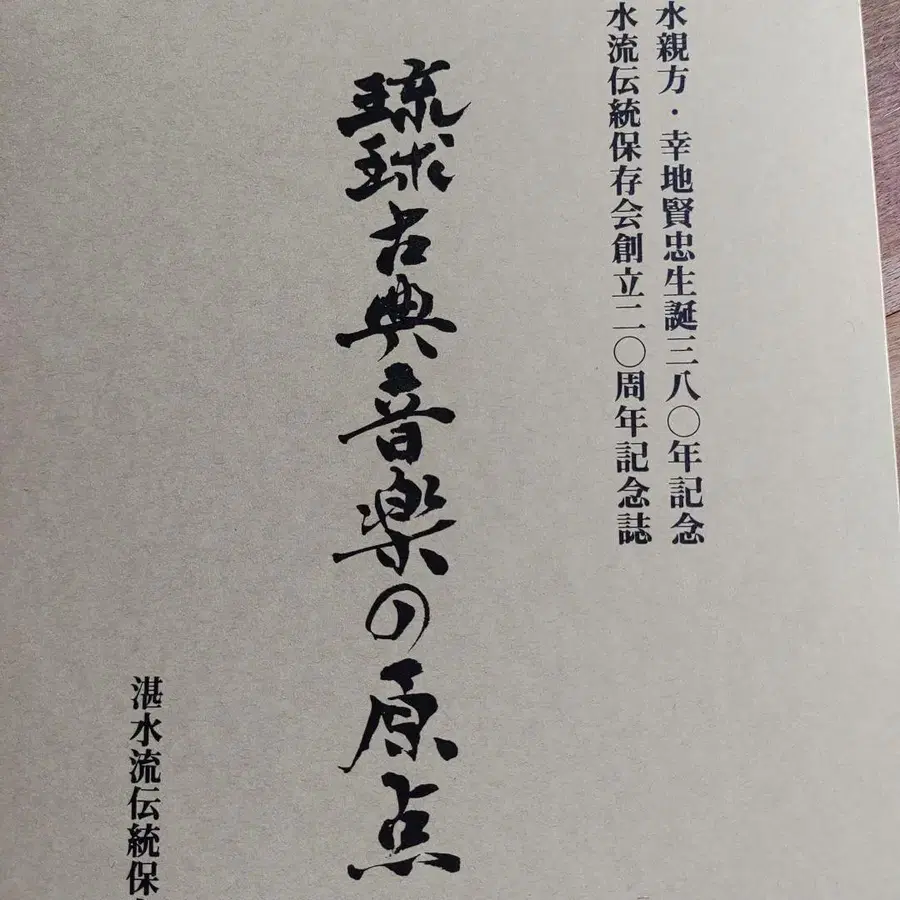 水親方・幸地賢忠生誕三八〇年記念
水流伝統保存会創立二〇周年記念誌
琉球古典音楽の原点
湛水流伝統保